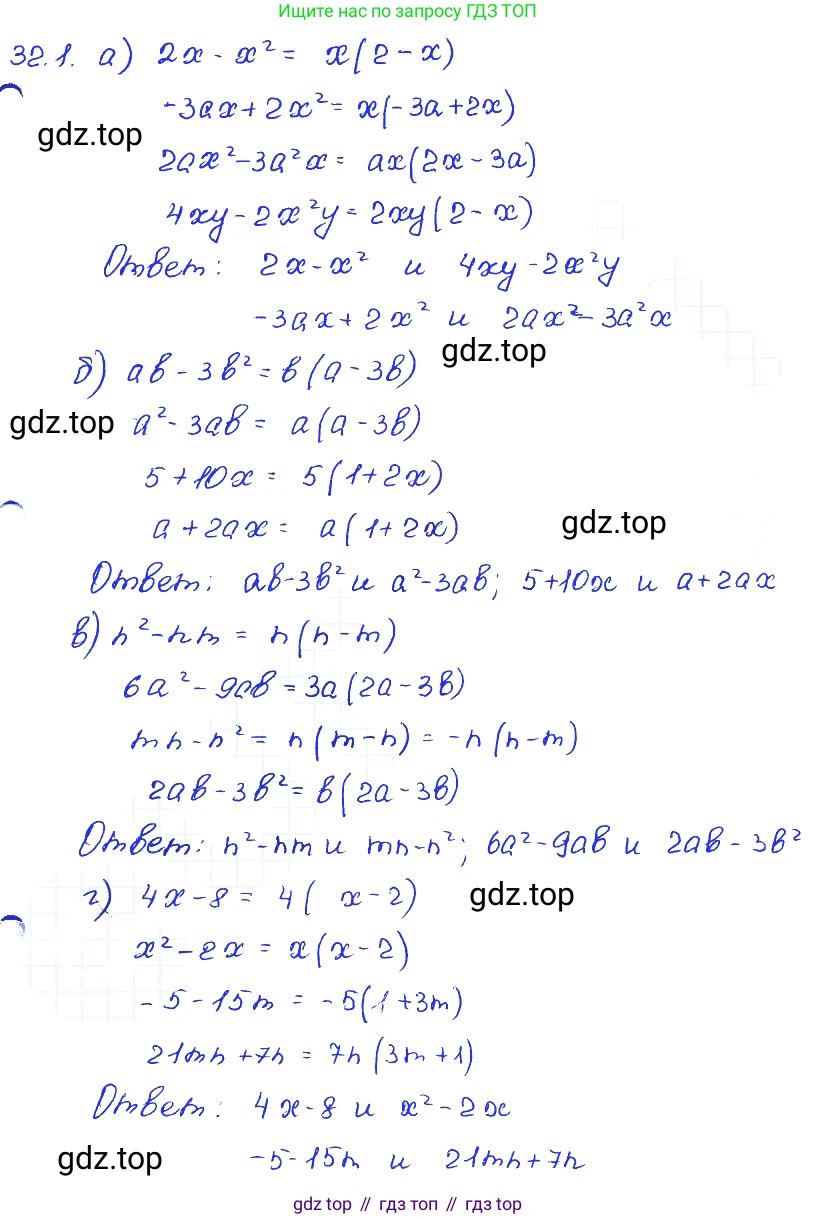 Ищите нас по запросу ГДЗ ТОП
32.1. а) 2x - x² = x(2 - x)
-3ax + 2x² = x(-3a + 2x)
gdz.top
2ax² - 3a²x = ax(2x - 3a)
4xy - 2x²y = 2xy(2 - x)
Ответ: 2x - x² и 4xy - 2x²y
-3ax + 2x² и 2ax² - 3a²x
gdz.top
б) ab - 3b² = b(a - 3b)
gdz.top a² - 3ab = a(a - 3b)
5 + 10x = 5(1 + 2x)
a + 2ax = a(1 + 2x) gdz.top
Ответ: ab - 3b² и a² - 3ab; 5 + 10x и a + 2ax
в) n² - nm = n(n - m)
6a² - 9ab = 3a(2a - 3b)
mn - n² = n(m - n) = -n(n - m)
2ab - 3b² = b(2a - 3b)
Ответ: n² - nm и mn - n²; 6a² - 9ab и 2ab - 3b²
г) 4x - 8 = 4( x - 2) gdz.top
x² - 2x = x(x - 2)
-5 - 15m = -5(1 + 3m)
21mn + 7n = 7n(3m + 1)
Ответ: 4x - 8 и x² - 2x
gdz.top -5 - 15m и 21mn + 7n
gdz top // гдз топ // гдз top